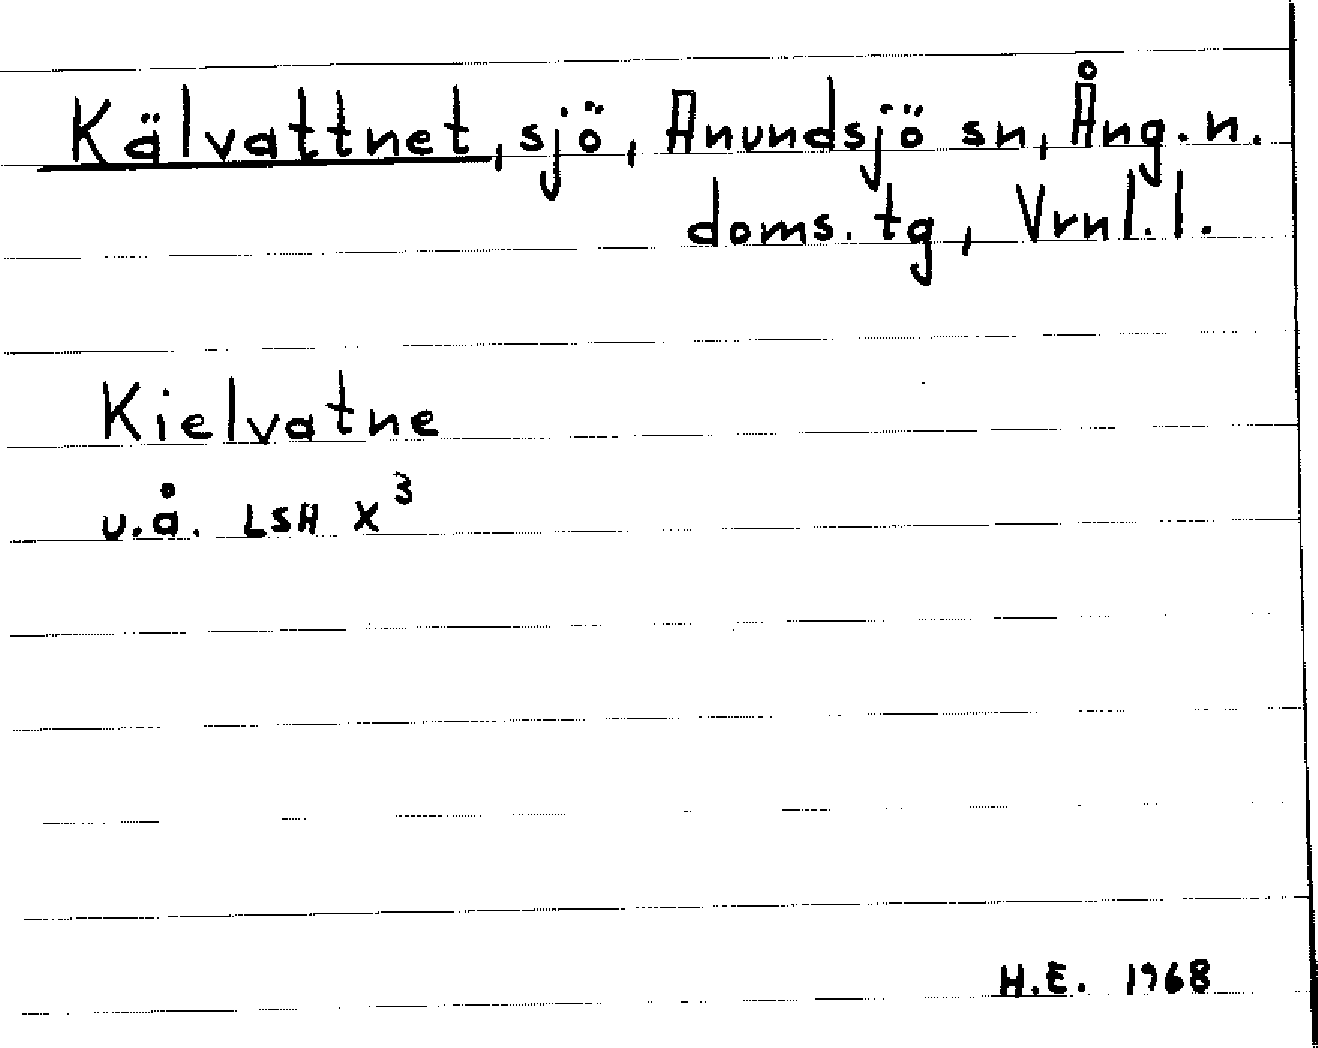 Kälvattnet, sjö, Anundsjö sn, Ång. n.
doms. tg, Vrnl. l.
Kielvatne
u.å. LSH X³
H.E. 1968